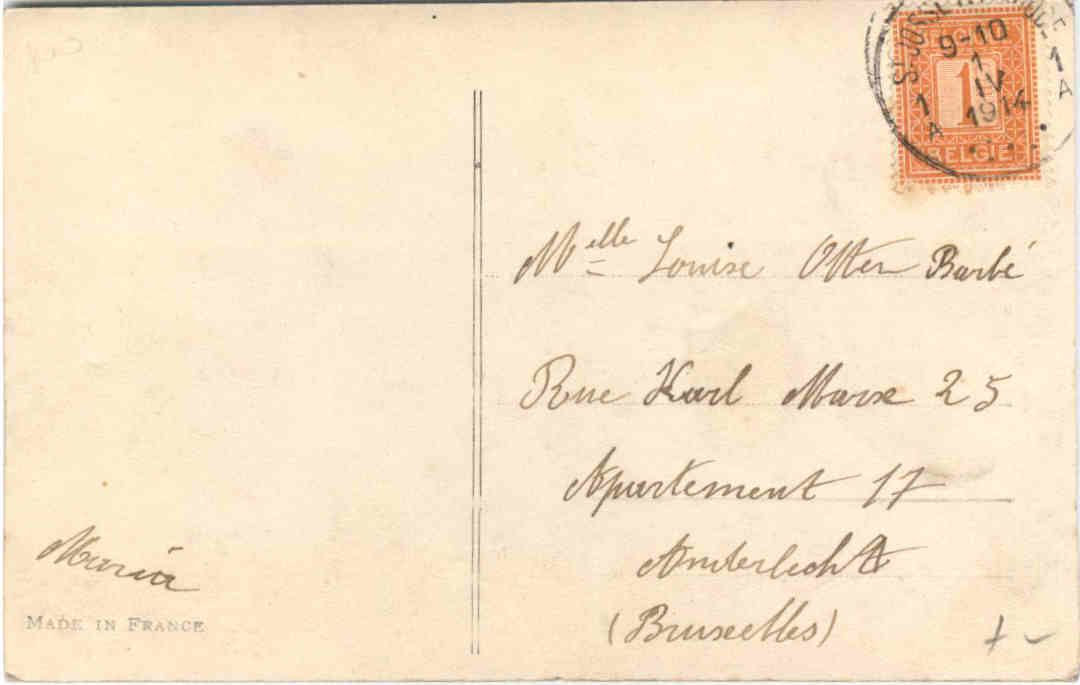 BELGIQUE
1
BELGIE
9-10
1
IV
1914
1 A
1 A
Melle Louise Otten Barbé
Rue Karl Marx 25
Apartement 17
Anderlecht
(Bruxelles)
Maria
MADE IN FRANCE